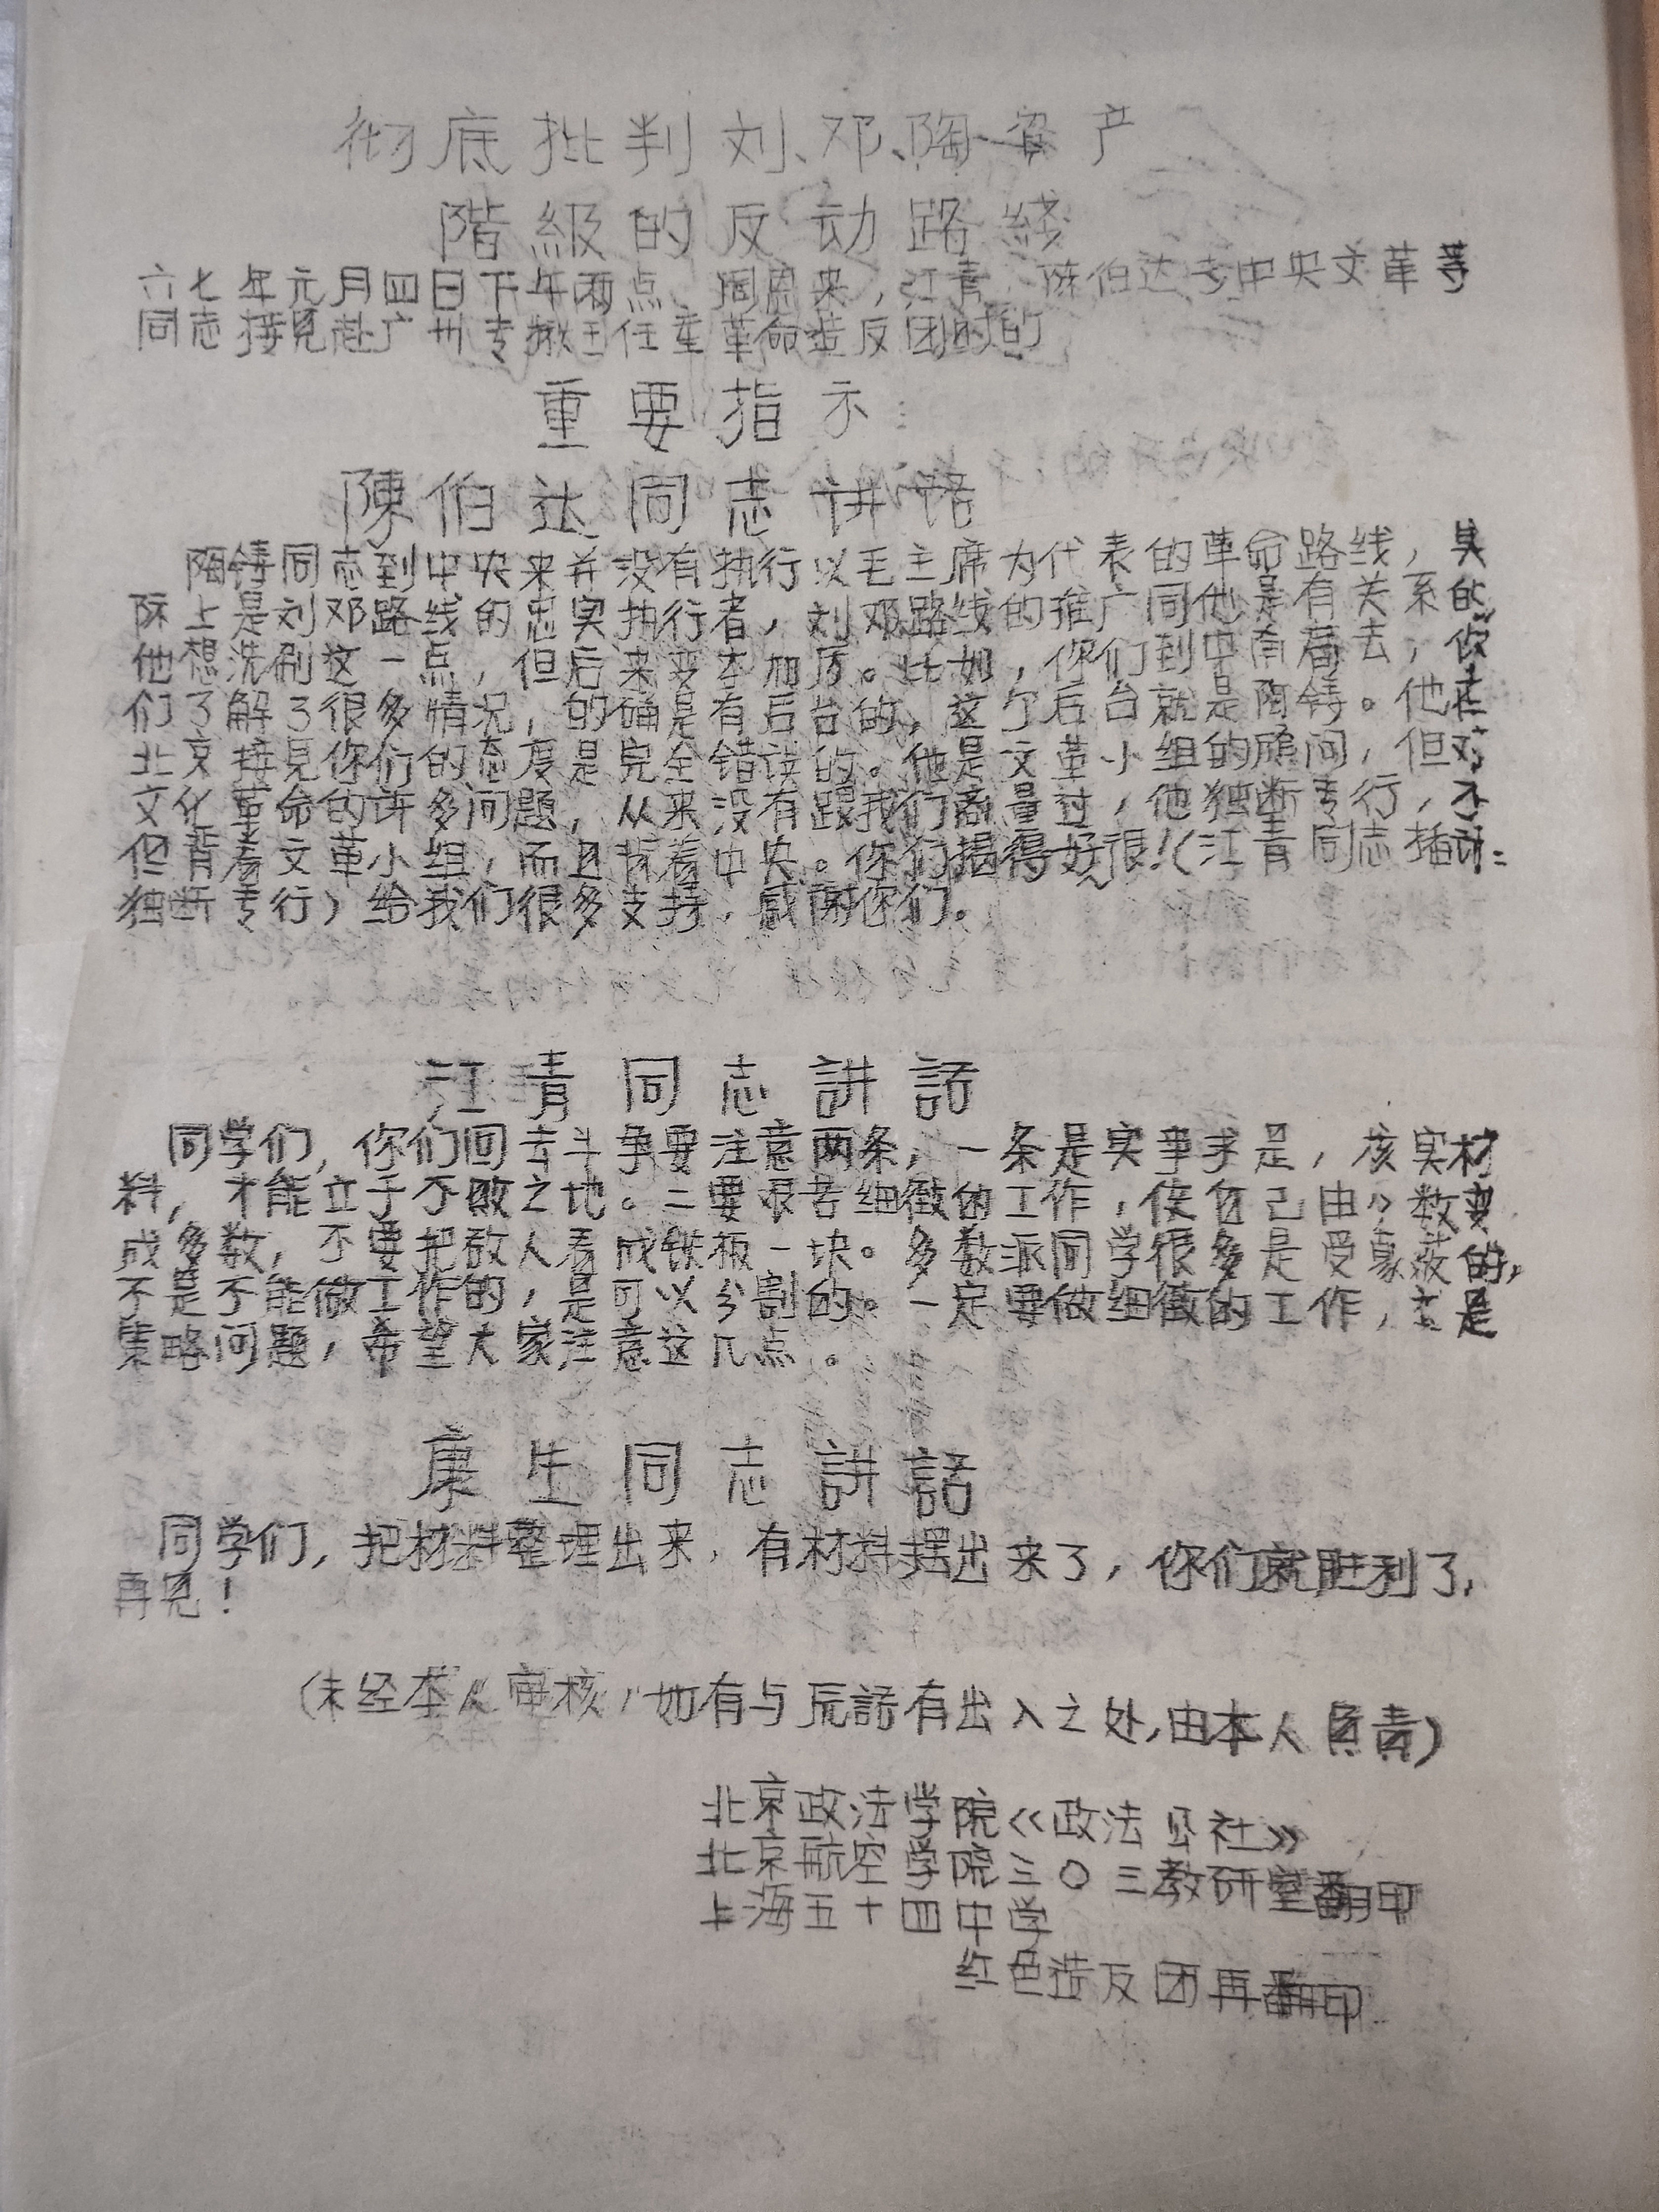 彻底批判刘、邓、陶资产
階級的反动路綫
六七年元月四日下午两点,周恩来,江青,陈伯达等中央文革等
同志接見赴广州专揪王任重革命造反团时的
重要指示:
陳伯达同志讲話
陶铸同志到中央来并没有执行以毛主席为代表的革命路线,其
际上是刘邓路线的忠实执行者,刘邓路线的推广同他是有关系的,
他想洗刷这一点,但后来变本加厉。比如,你们到中南局去,你
们了解了很多情况,的确是有后台的,这个后台就是陶铸。他在
北京接見你们的态度是完全错误的。他是文革小组的顾问,但对
文化革命的许多问题,从来没有跟我们商量过,他独断专行,不
但背着文革小组,而且背着中央。你们揭得好很!(江青同志插話:
独断专行)给我们很多支持,感谢你们。
江青同志講話
同学们,你们回去斗争要注意两条,一条是实事求是,核实材
料,才能立于不败之地。二要艰苦细微的工作,使自己由少数变
成多数,不要把敌人看成铁板一块。多数派同学很多是受蒙蔽的,
不是不能做工作的,是可以分割的。一定要做细微的工作,这是
策略问题,希望大家注意这几点。
康生同志講話
同学们,把材料整理出来,有材料摆出来了,你们就胜利了,
再見!
(未经本人审核,如有与原話有出入之处,由本人負责)
北京政法学院《政法公社》
北京航空学院三〇三教研室翻印
上海五十四中学
红色造反团再翻印